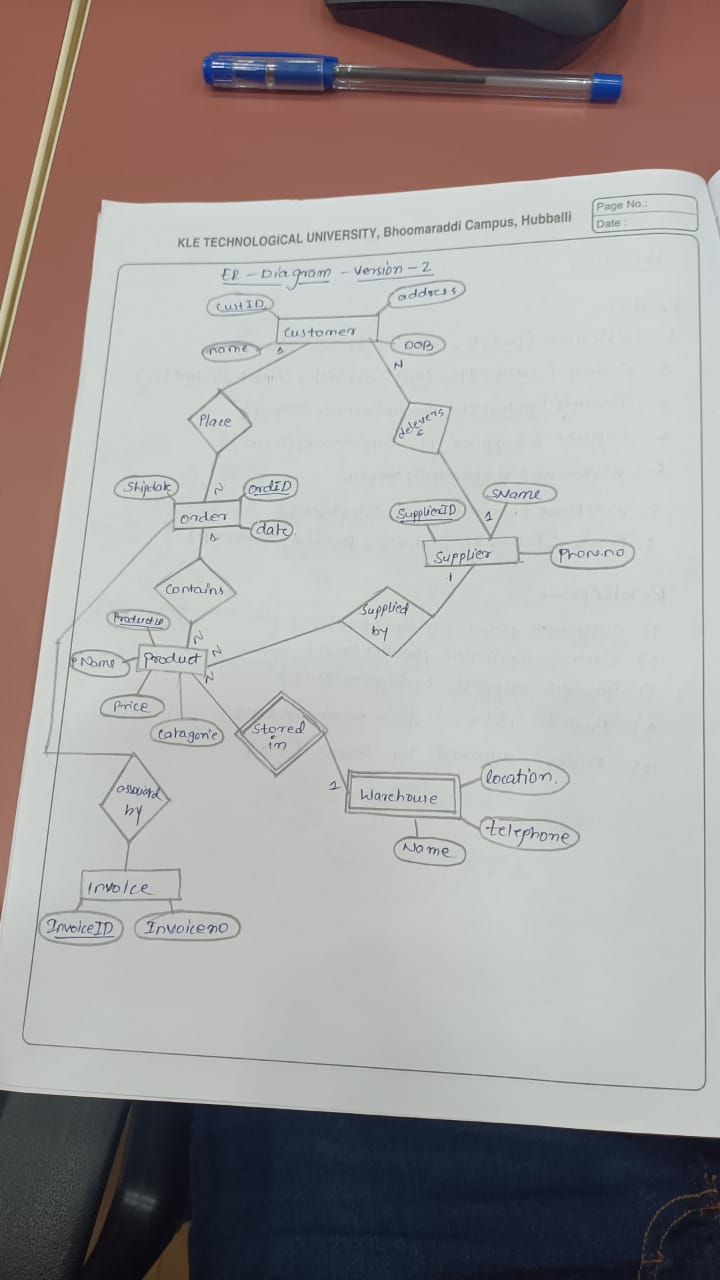 Page No.:
Date :
KLE TECHNOLOGICAL UNIVERSITY, Bhoomaraddi Campus, Hubballi
ER-Diagram-Version-2
CustID
address
Customer
name
1
DOB
N
Place
delevers
Shipdate
N
OrdID
SName
SupplierID
1
Order
date
1
Supplier
Phone.no
1
Contains
Supplied
by
ProductID
N
N
PName
Product
N
Price
Catagorie
Stored
in
1
Warehouse
location.
telephone
Name
by
Invoice
InvoiceID
Invoiceno